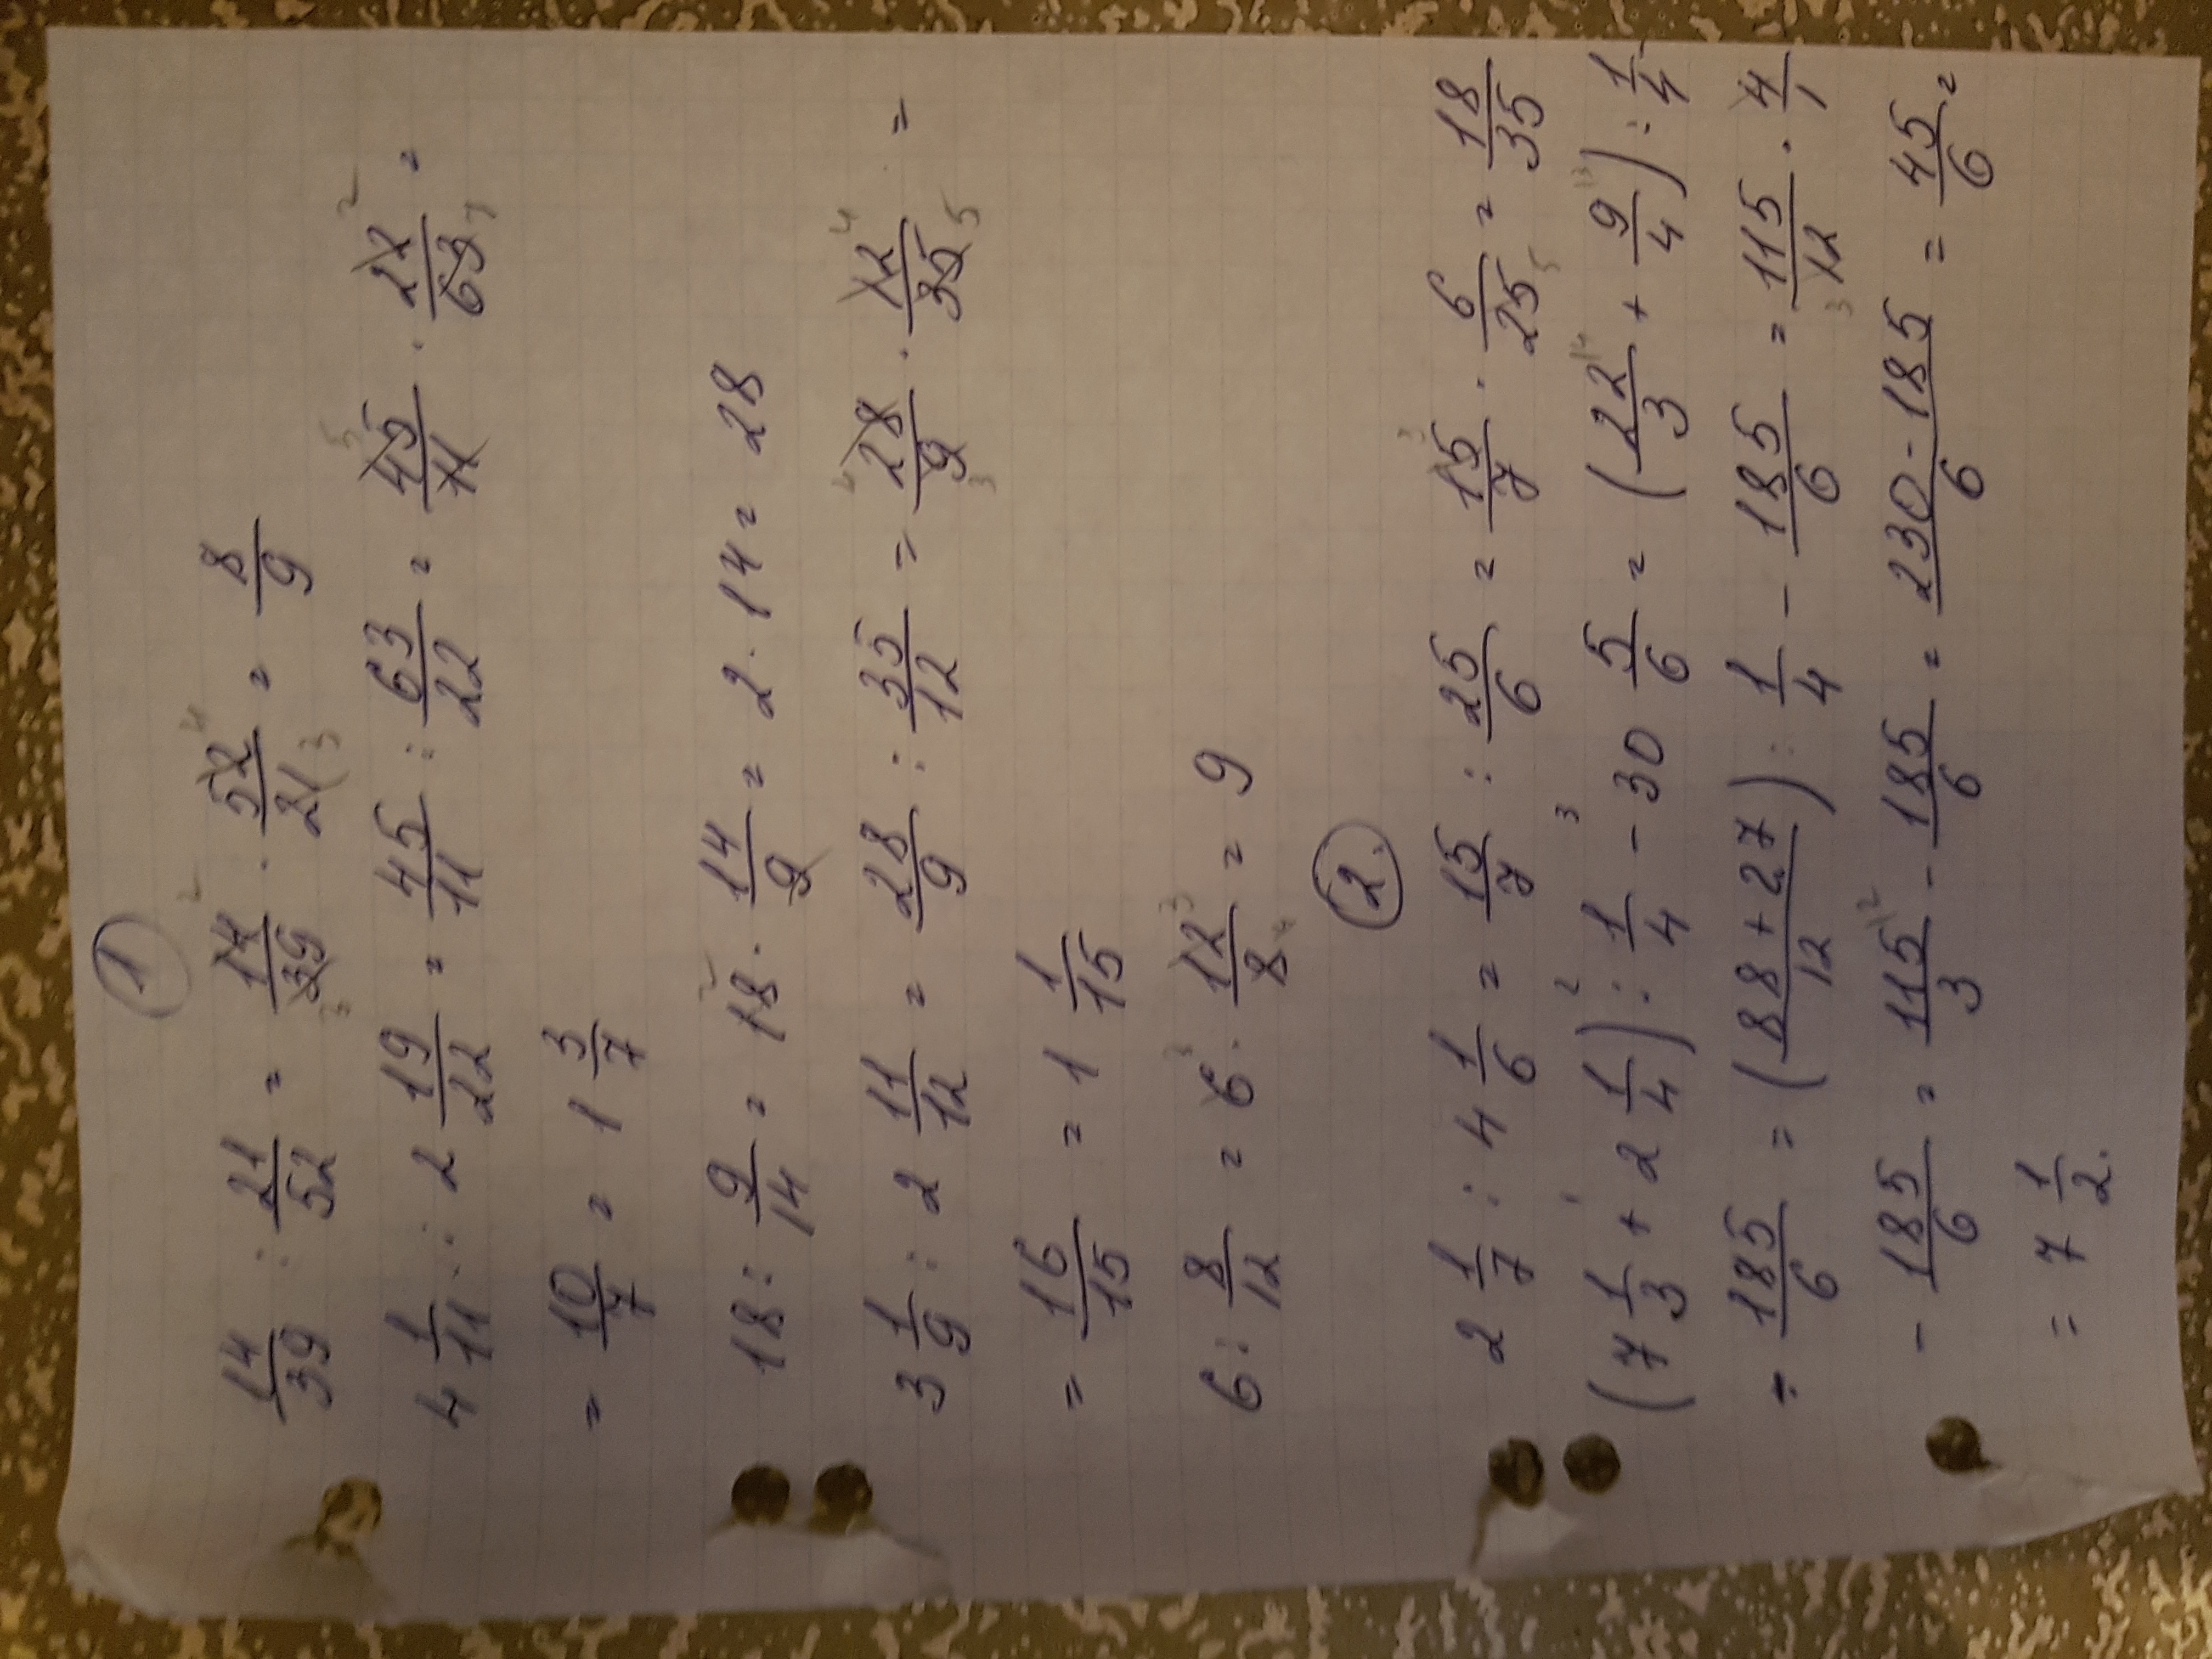 1
14/39 : 21/52 = 14/39 · 52/21 = 8/9
4 1/11 : 2 19/22 = 45/11 : 63/22 = 45/11 · 22/63 =
= 10/7 = 1 3/7
18 : 9/14 = 18 · 14/9 = 2 · 14 = 28
3 1/9 : 2 11/12 = 28/9 : 35/12 = 28/9 · 12/35 =
= 16/15 = 1 1/15
6 : 8/12 = 6 · 12/8 = 9
2.
2 1/7 : 4 1/6 = 15/7 : 25/6 = 15/7 · 6/25 = 18/35
(7 1/3 + 2 1/4) : 1/4 - 30 5/6 = (22/3 + 9/4) : 1/4 -
- 185/6 = (88 + 27/12) : 1/4 - 185/6 = 115/12 · 4/1
- 185/6 = 115/3 - 185/6 = 230 - 185/6 = 45/6 =
= 7 1/2.